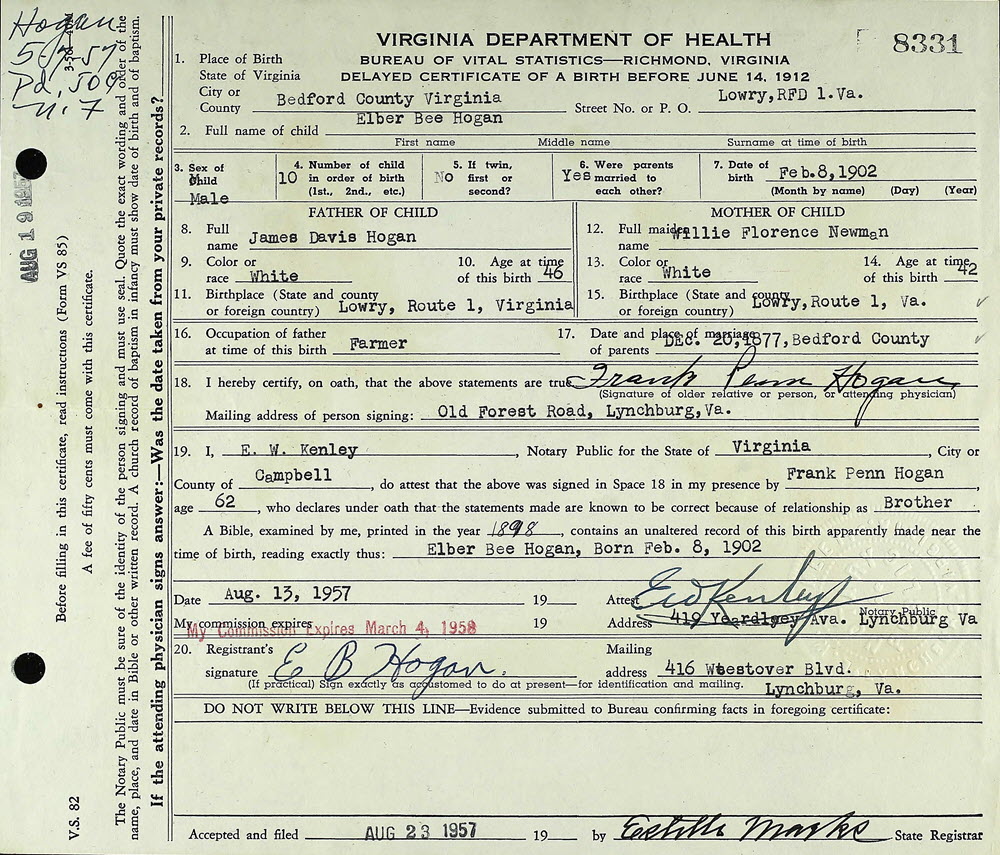 Hogan
5/7/57
Pd. 50¢
8331
VIRGINIA DEPARTMENT OF HEALTH
BUREAU OF VITAL STATISTICS—RICHMOND, VIRGINIA
DELAYED CERTIFICATE OF A BIRTH BEFORE JUNE 14, 1912
1. Place of Birth
State of Virginia
City or County Bedford County Virginia Street No. or P. O. Lowry,RFD 1.Va.
2. Full name of child Elber Bee Hogan
First name Middle name Surname at time of birth
3. Sex of Child Male
4. Number of child in order of birth (1st., 2nd., etc.) 10
5. If twin, first or second? No
6. Were parents married to each other? Yes
7. Date of birth Feb.8,1902
(Month by name) (Day) (Year)
FATHER OF CHILD
8. Full name James Davis Hogan
9. Color or race White
10. Age at time of this birth 46
11. Birthplace (State and county or foreign country) Lowry, Route 1, Virginia
MOTHER OF CHILD
12. Full maiden name Willie Florence Newman
13. Color or race White
14. Age at time of this birth 42
15. Birthplace (State and county or foreign country) Lowry,Route 1, Va.
16. Occupation of father at time of this birth Farmer
17. Date and place of marriage of parents Dec. 20,1877,Bedford County
18. I hereby certify, on oath, that the above statements are true Frank Penn Hogan
(Signature of older relative or person, or attending physician)
Mailing address of person signing: Old Forest Road, Lynchburg,Va.
19. I, E. W. Kenley, Notary Public for the State of Virginia, City or
County of Campbell, do attest that the above was signed in Space 18 in my presence by Frank Penn Hogan
age 62, who declares under oath that the statements made are known to be correct because of relationship as Brother.
A Bible, examined by me, printed in the year 1898, contains an unaltered record of this birth apparently made near the
time of birth, reading exactly thus: Elber Bee Hogan, Born Feb. 8, 1902
Date Aug. 13, 1957 19 Attest E W Kenley
Notary Public
My commission expires 19 Address 419 Yeardlgey Ava. Lynchburg Va
My Commission Expires March 4, 1958
20. Registrant's signature E B Hogan.
Mailing address 416 Wtestover Blvd.
(If practical) Sign exactly as accustomed to do at present—for identification and mailing. Lynchburg, Va.
DO NOT WRITE BELOW THIS LINE—Evidence submitted to Bureau confirming facts in foregoing certificate:
Accepted and filed AUG 23 1957 19 by Estille Marks State Registrar
AUG 19 1957
V.S. 82
Before filling in this certificate, read instructions (Form VS 85)
A fee of fifty cents must come with this certificate.
The Notary Public must be sure of the identity of the person signing and must use seal. Quote the exact wording and order of the
name, place, and date in Bible or other written record. A church record of baptism in infancy must show date of birth and of baptism.
If the attending physician signs answer:—Was the date taken from your private records?